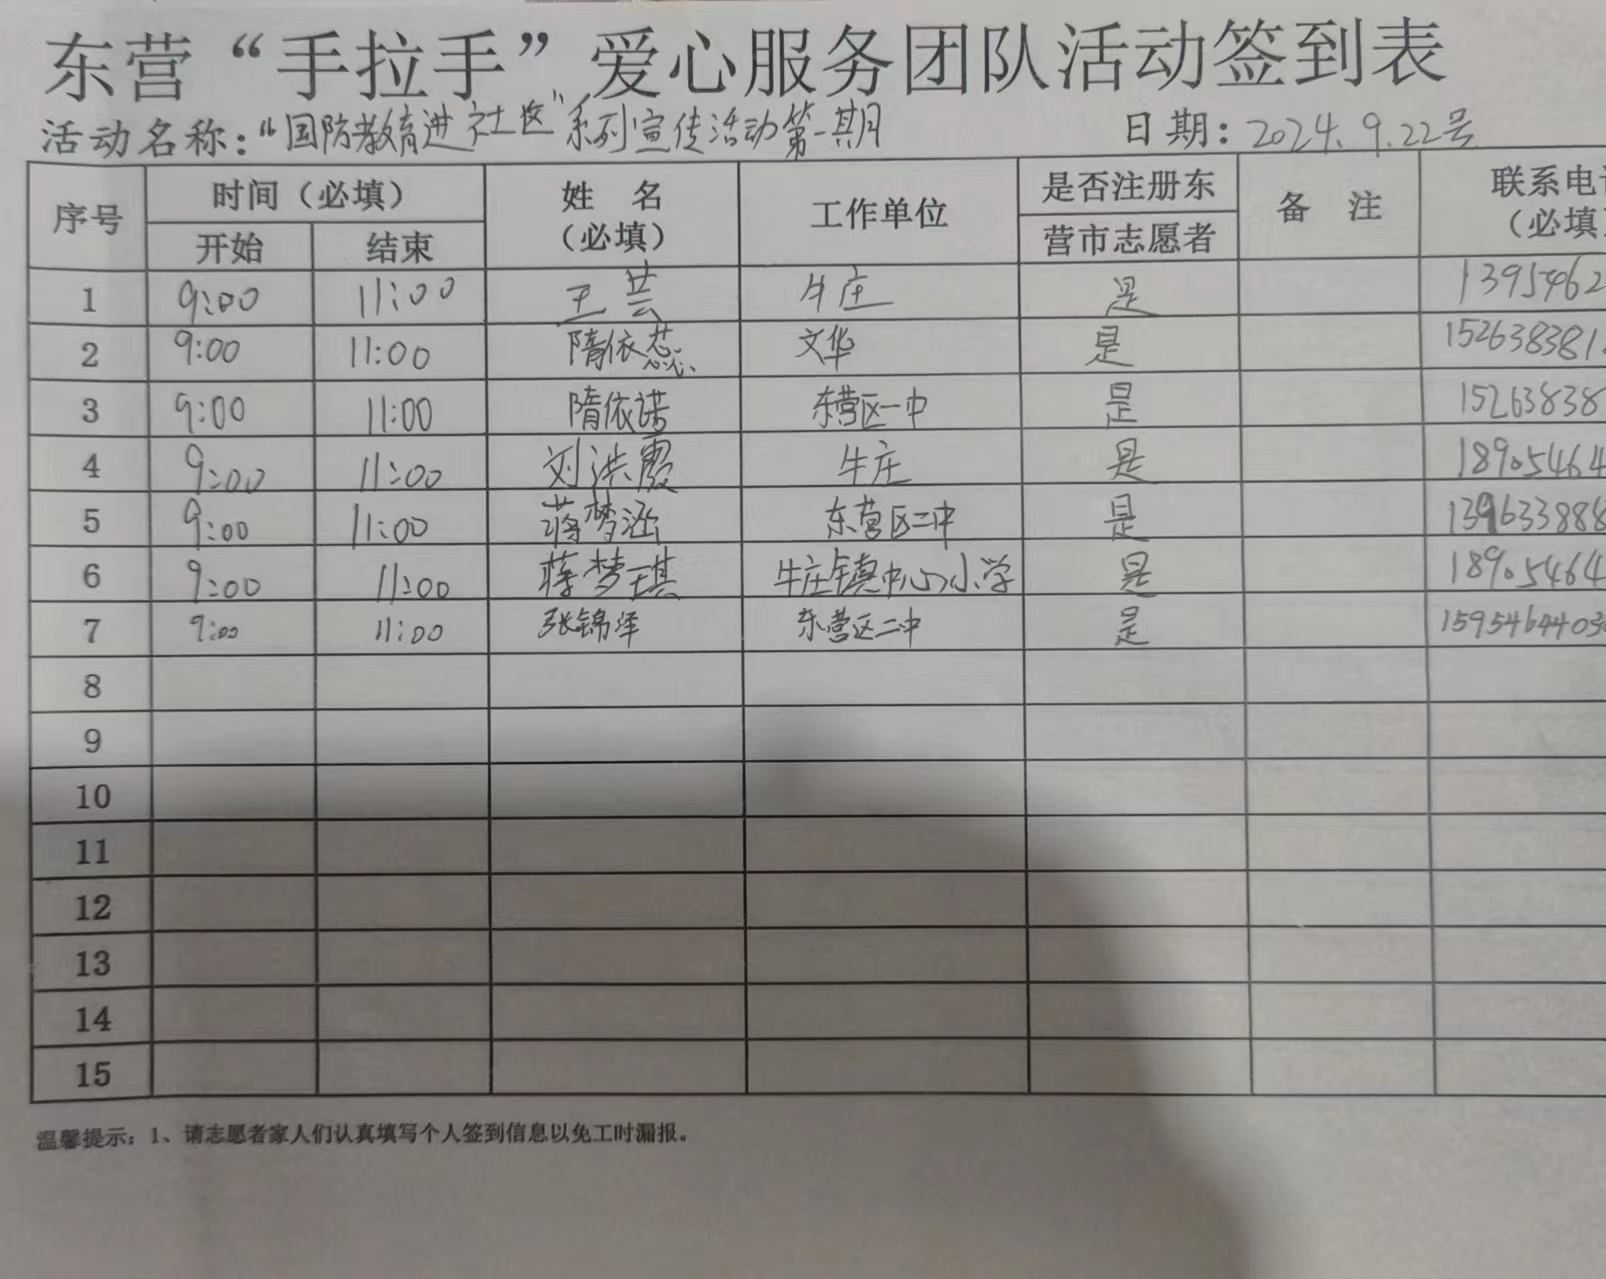 东营“手拉手”爱心服务团队活动签到表
活动名称：“国防教育进社区”系列宣传活动第一期 日期：2024.9.22号
序号 时间（必填） 姓 名（必填） 工作单位 是否注册东营市志愿者 备 注 联系电（必填
开始 结束
1 9:00 11:00 王芸 牛庄 是 1395462
2 9:00 11:00 隋依蕊 文华 是 152638381
3 9:00 11:00 隋依诺 东营区一中 是 15263838
4 9:00 11:00 刘洪霞 牛庄 是 18905464
5 9:00 11:00 蒋梦涵 东营区二中 是 139633888
6 9:00 11:00 蒋梦琪 牛庄镇中心小学 是 18905464
7 9:00 11:00 张锦泽 东营区二中 是 1595464403
8
9
10
11
12
13
14
15
温馨提示：1、请志愿者家人们认真填写个人签到信息以免工时漏报。